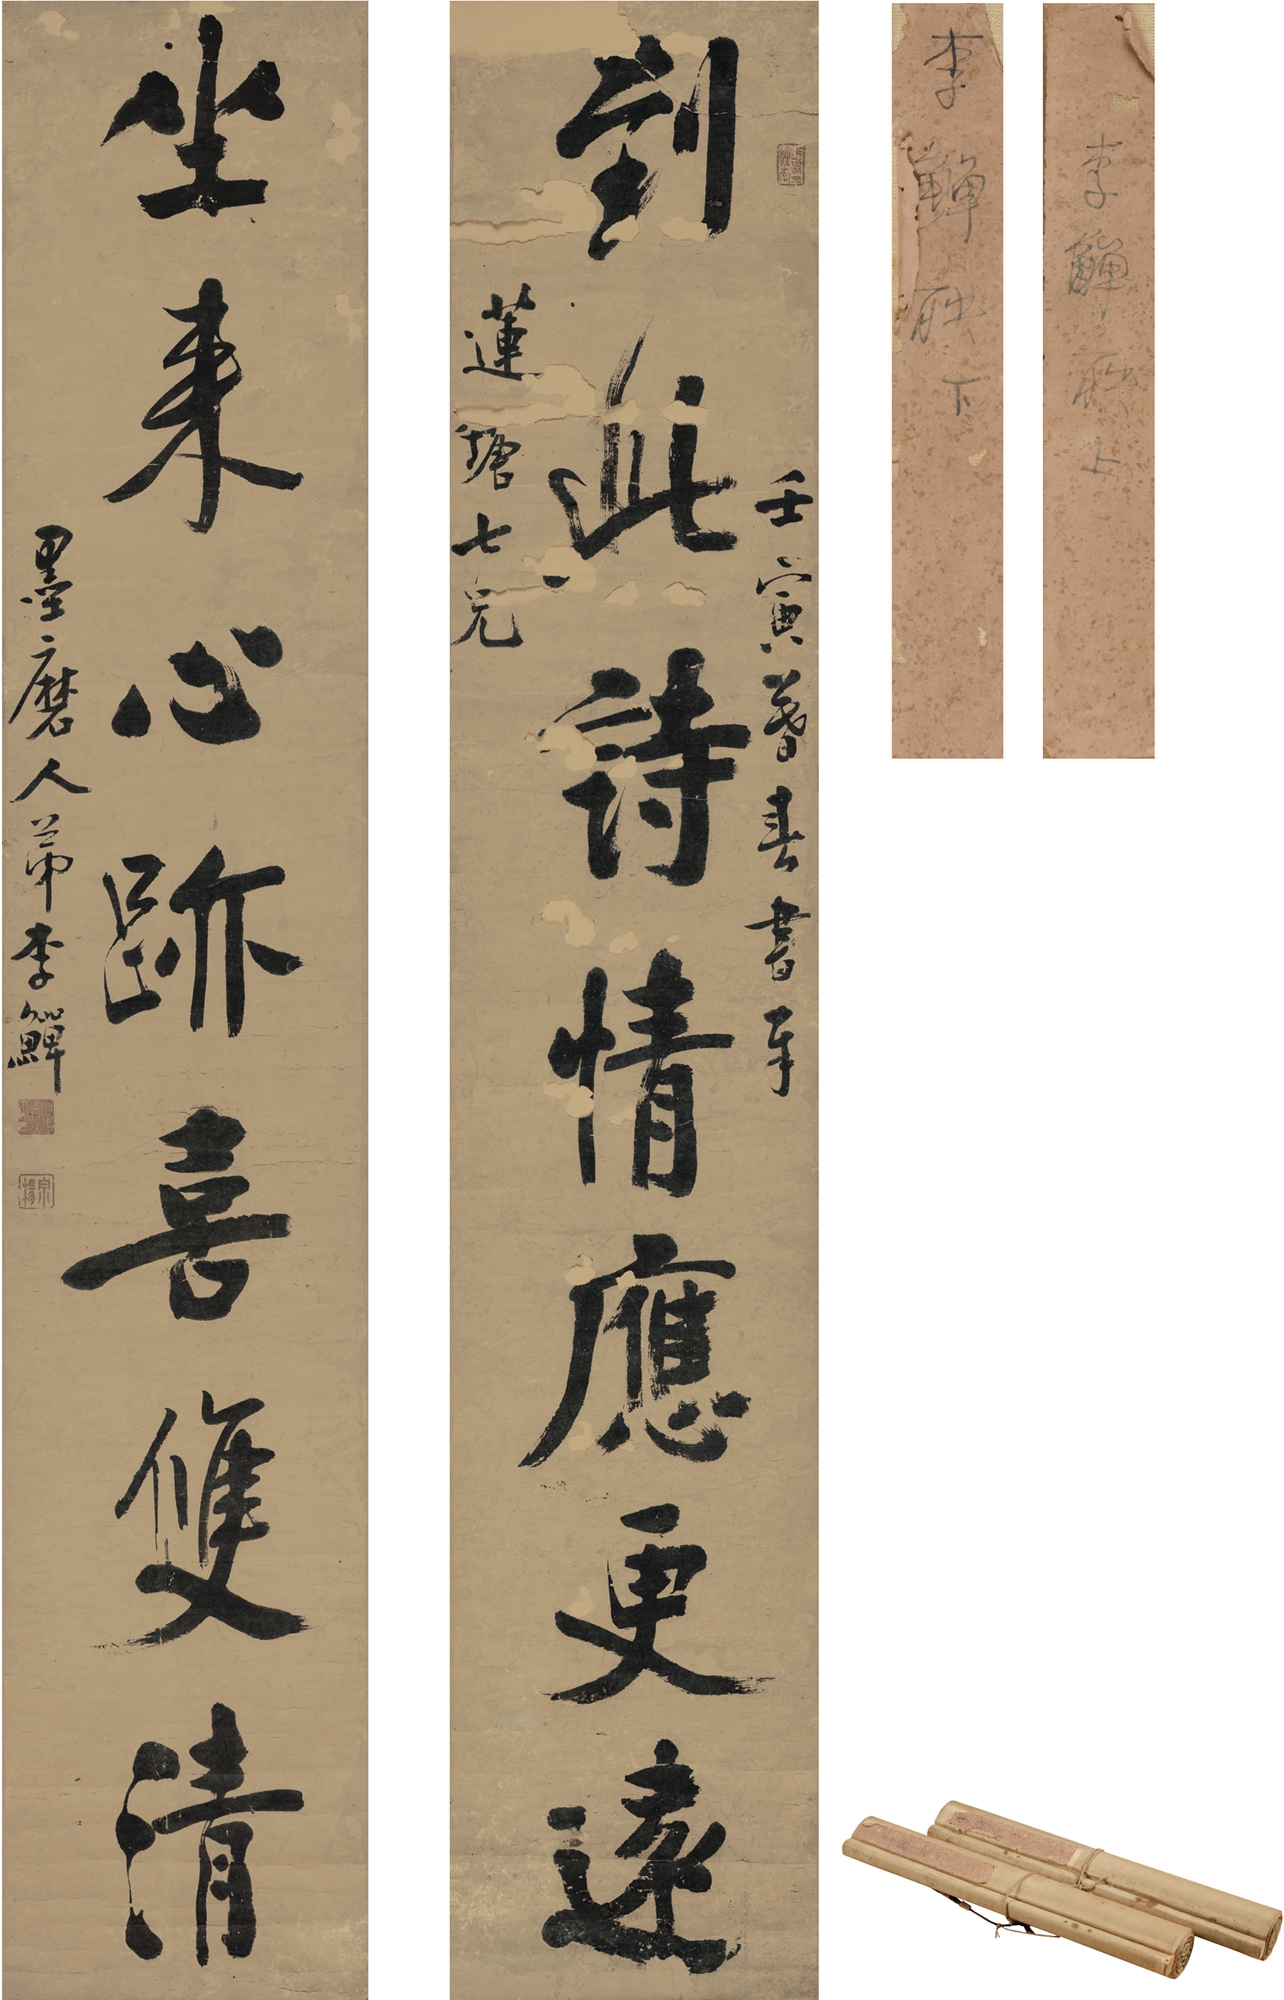 壬寅暮春書
到此詩情應更遠
蓮塘七兄
坐來心跡喜雙清
墨磨人弟李鱓
宗揚
李鱓联上
李鱓联下